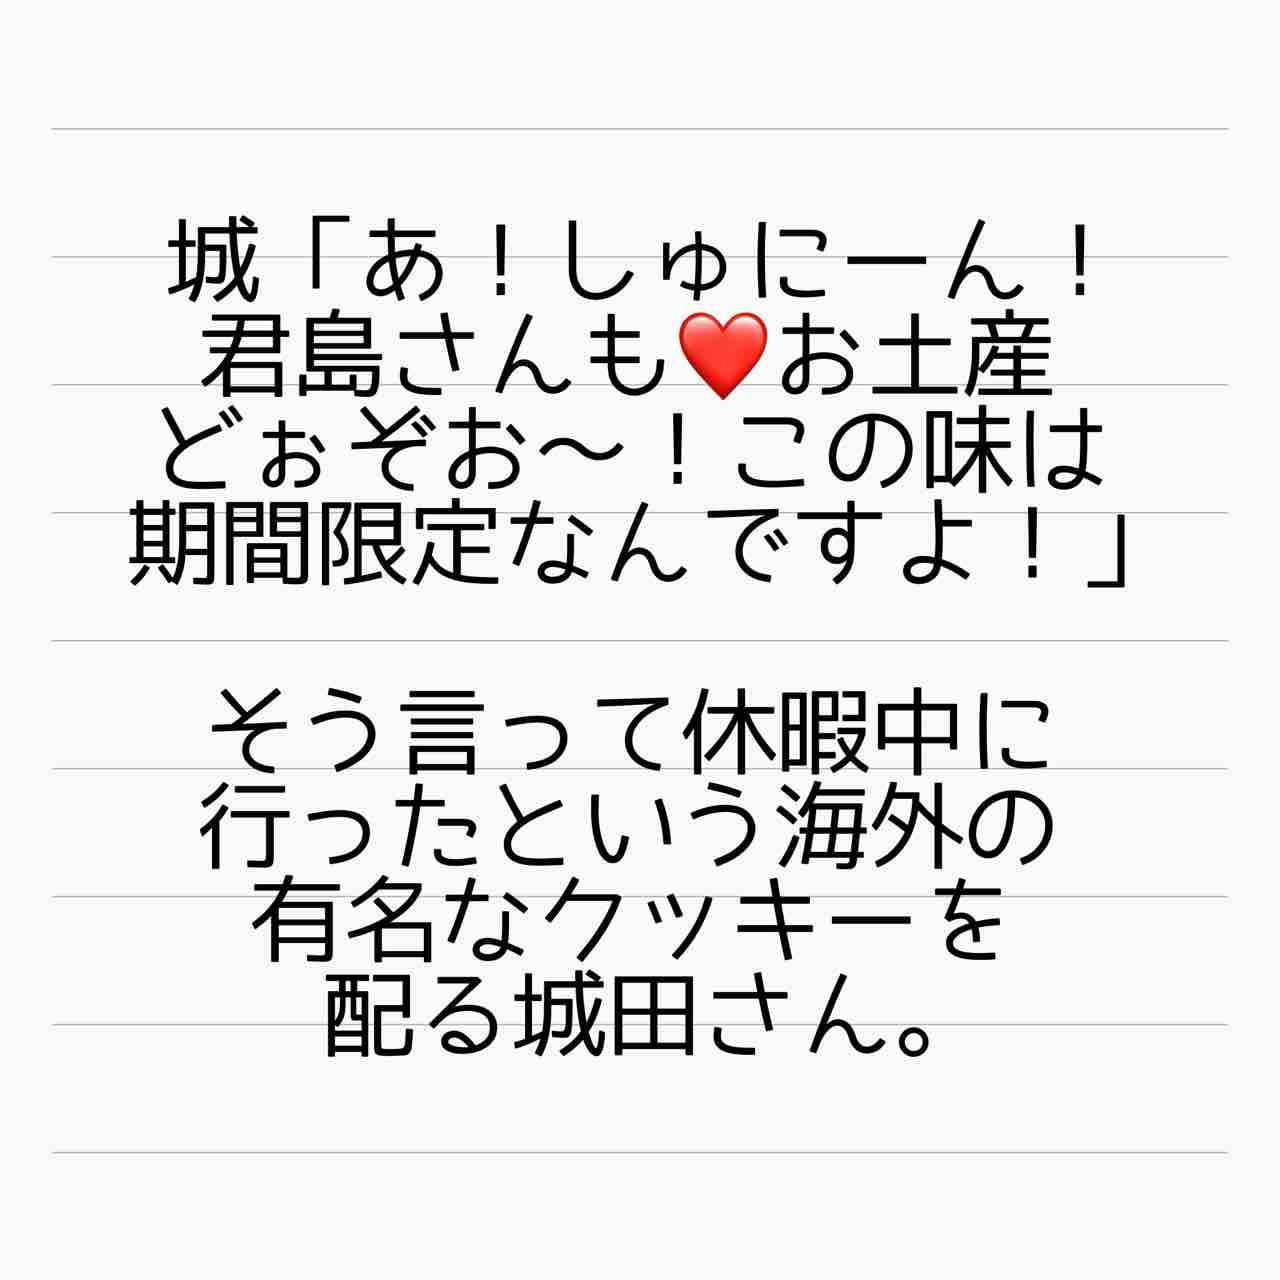 城「あ！しゅにーん！
君島さんも❤️お土産
どぉぞお〜！この味は
期間限定なんですよ！」
そう言って休暇中に
行ったという海外の
有名なクッキーを
配る城田さん。